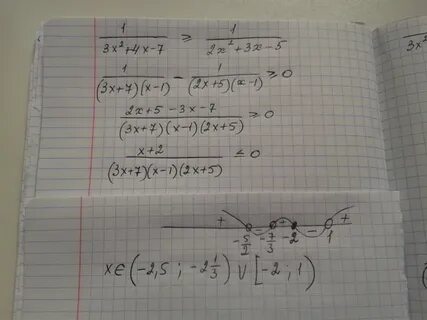 1/(3x²+4x-7) ≥ 1/(2x²+3x-5)
1/((3x+7)(x-1)) - 1/((2x+5)(x-1)) ≥ 0
(2x+5-3x-7)/((3x+7)(x-1)(2x+5)) ≥ 0
(x+2)/((3x+7)(x-1)(2x+5)) ≤ 0
+ - + - +
-5/2 -7/3 -2 1
x∈(-2,5 ; -2 1/3) ∪ [-2 ; 1)
3x²